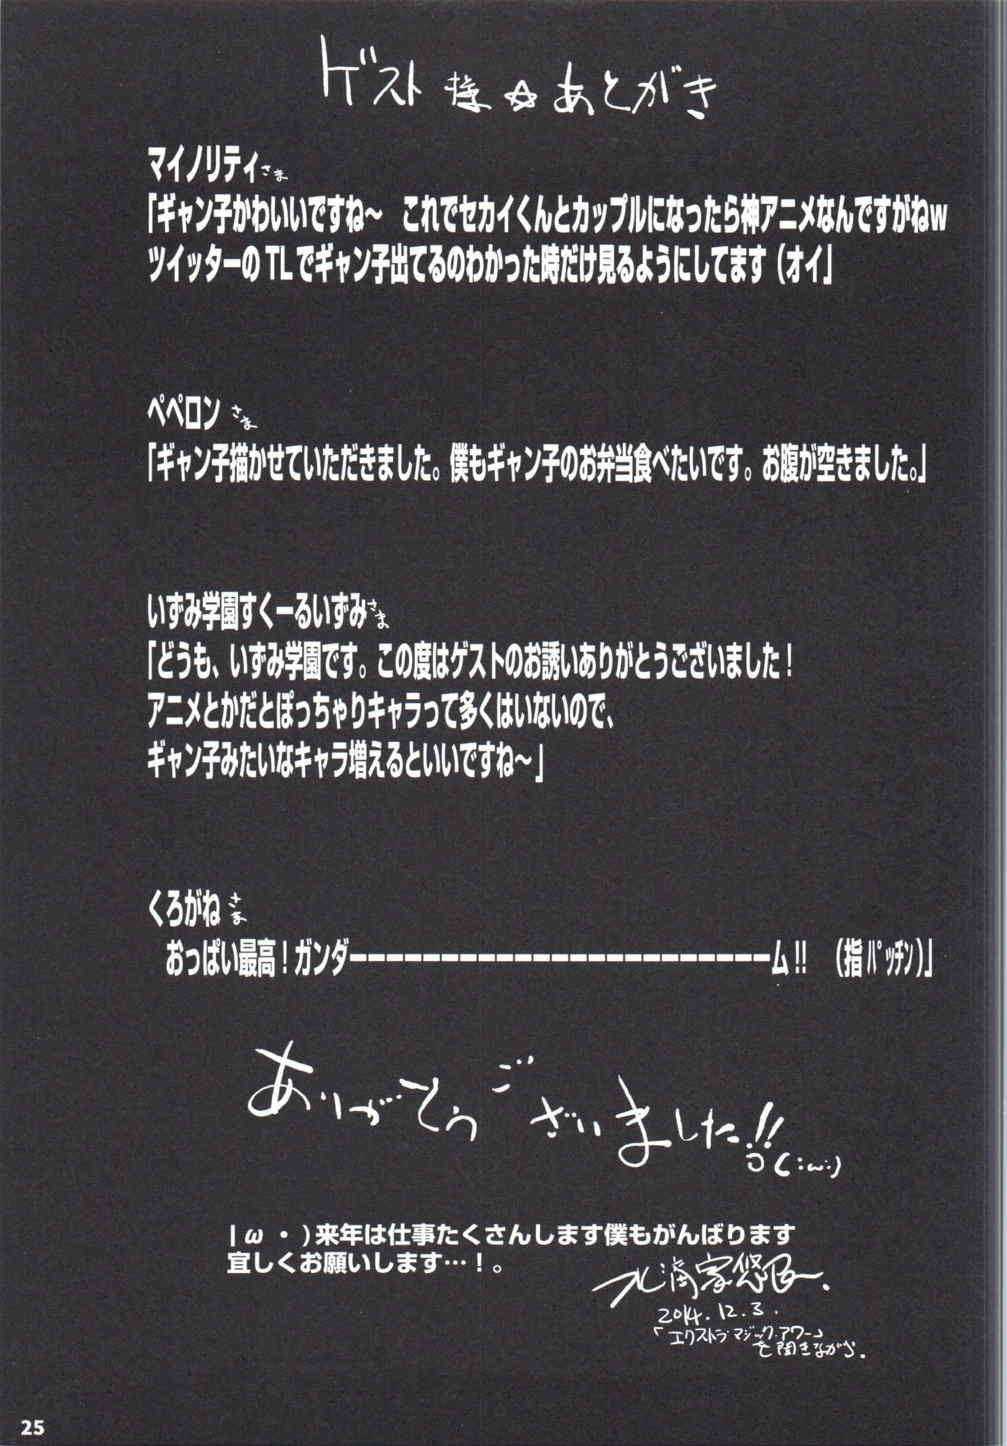 ゲスト様☆あとがき
マイノリティさま
「ギャン子かわいいですね～　これでセカイくんとカップルになったら神アニメなんですがねw
ツイッターのTLでギャン子出てるのわかった時だけ見るようにしてます（オイ」
ペペロンさま
「ギャン子描かせていただきました。僕もギャン子のお弁当食べたいです。お腹が空きました。」
いずみ学園すくーるいずみさま
「どうも、いずみ学園です。この度はゲストのお誘いありがとうございました！
アニメとかだとぽっちゃりキャラって多くはいないので、
ギャン子みたいなキャラ増えるといいですね～」
くろがねさま
おっぱい最高！ガンダーーーーーーーーーーーーーーーーーーーーーーーム!!　（指ﾊﾟｯﾁﾝ）」
ありがとうございました!!
|ω・)来年は仕事たくさんします僕もがんばります
宜しくお願いします…！。
2014.12.3.
「エクストラ・マジック・アワー」
を聞きながら.
25